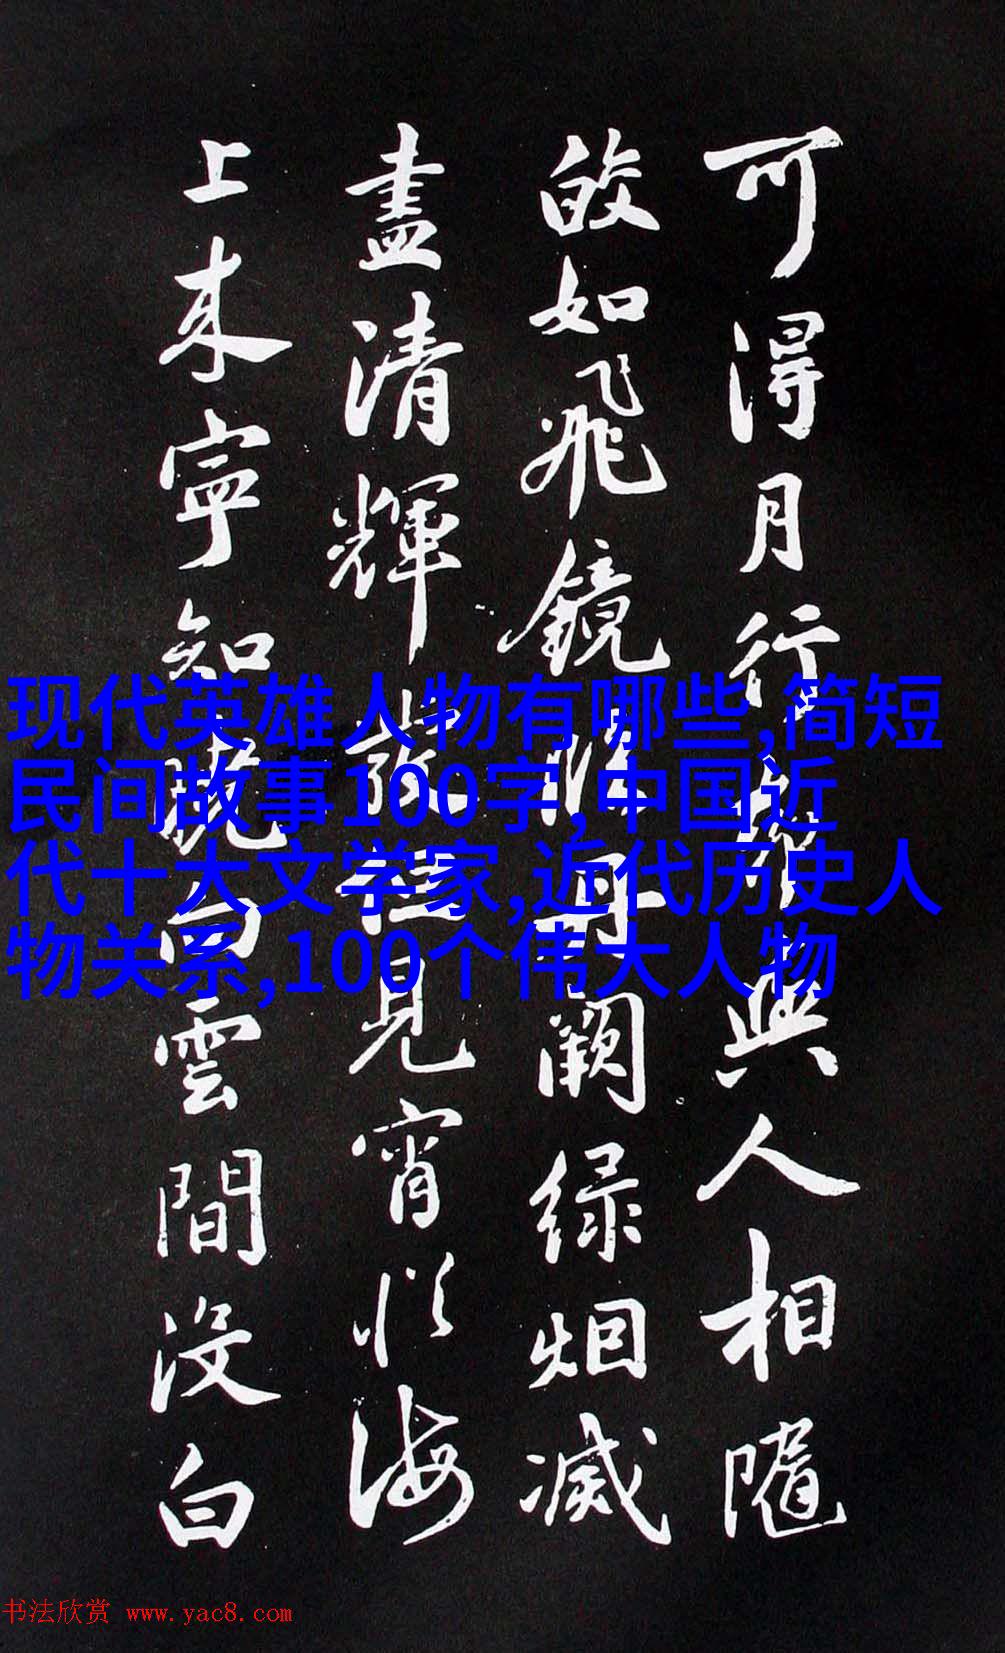 可得月行却與人相隨
皎如飛鏡臨丹闕緑烟滅
盡清輝發但見宵從海
上来寧知曉向雲間没白
现代英雄人物有哪些,简短
民间故事100字,中国近
代十大文学家,近代历史人
物关系,100个伟大人物
书法欣赏 www.yac8.com